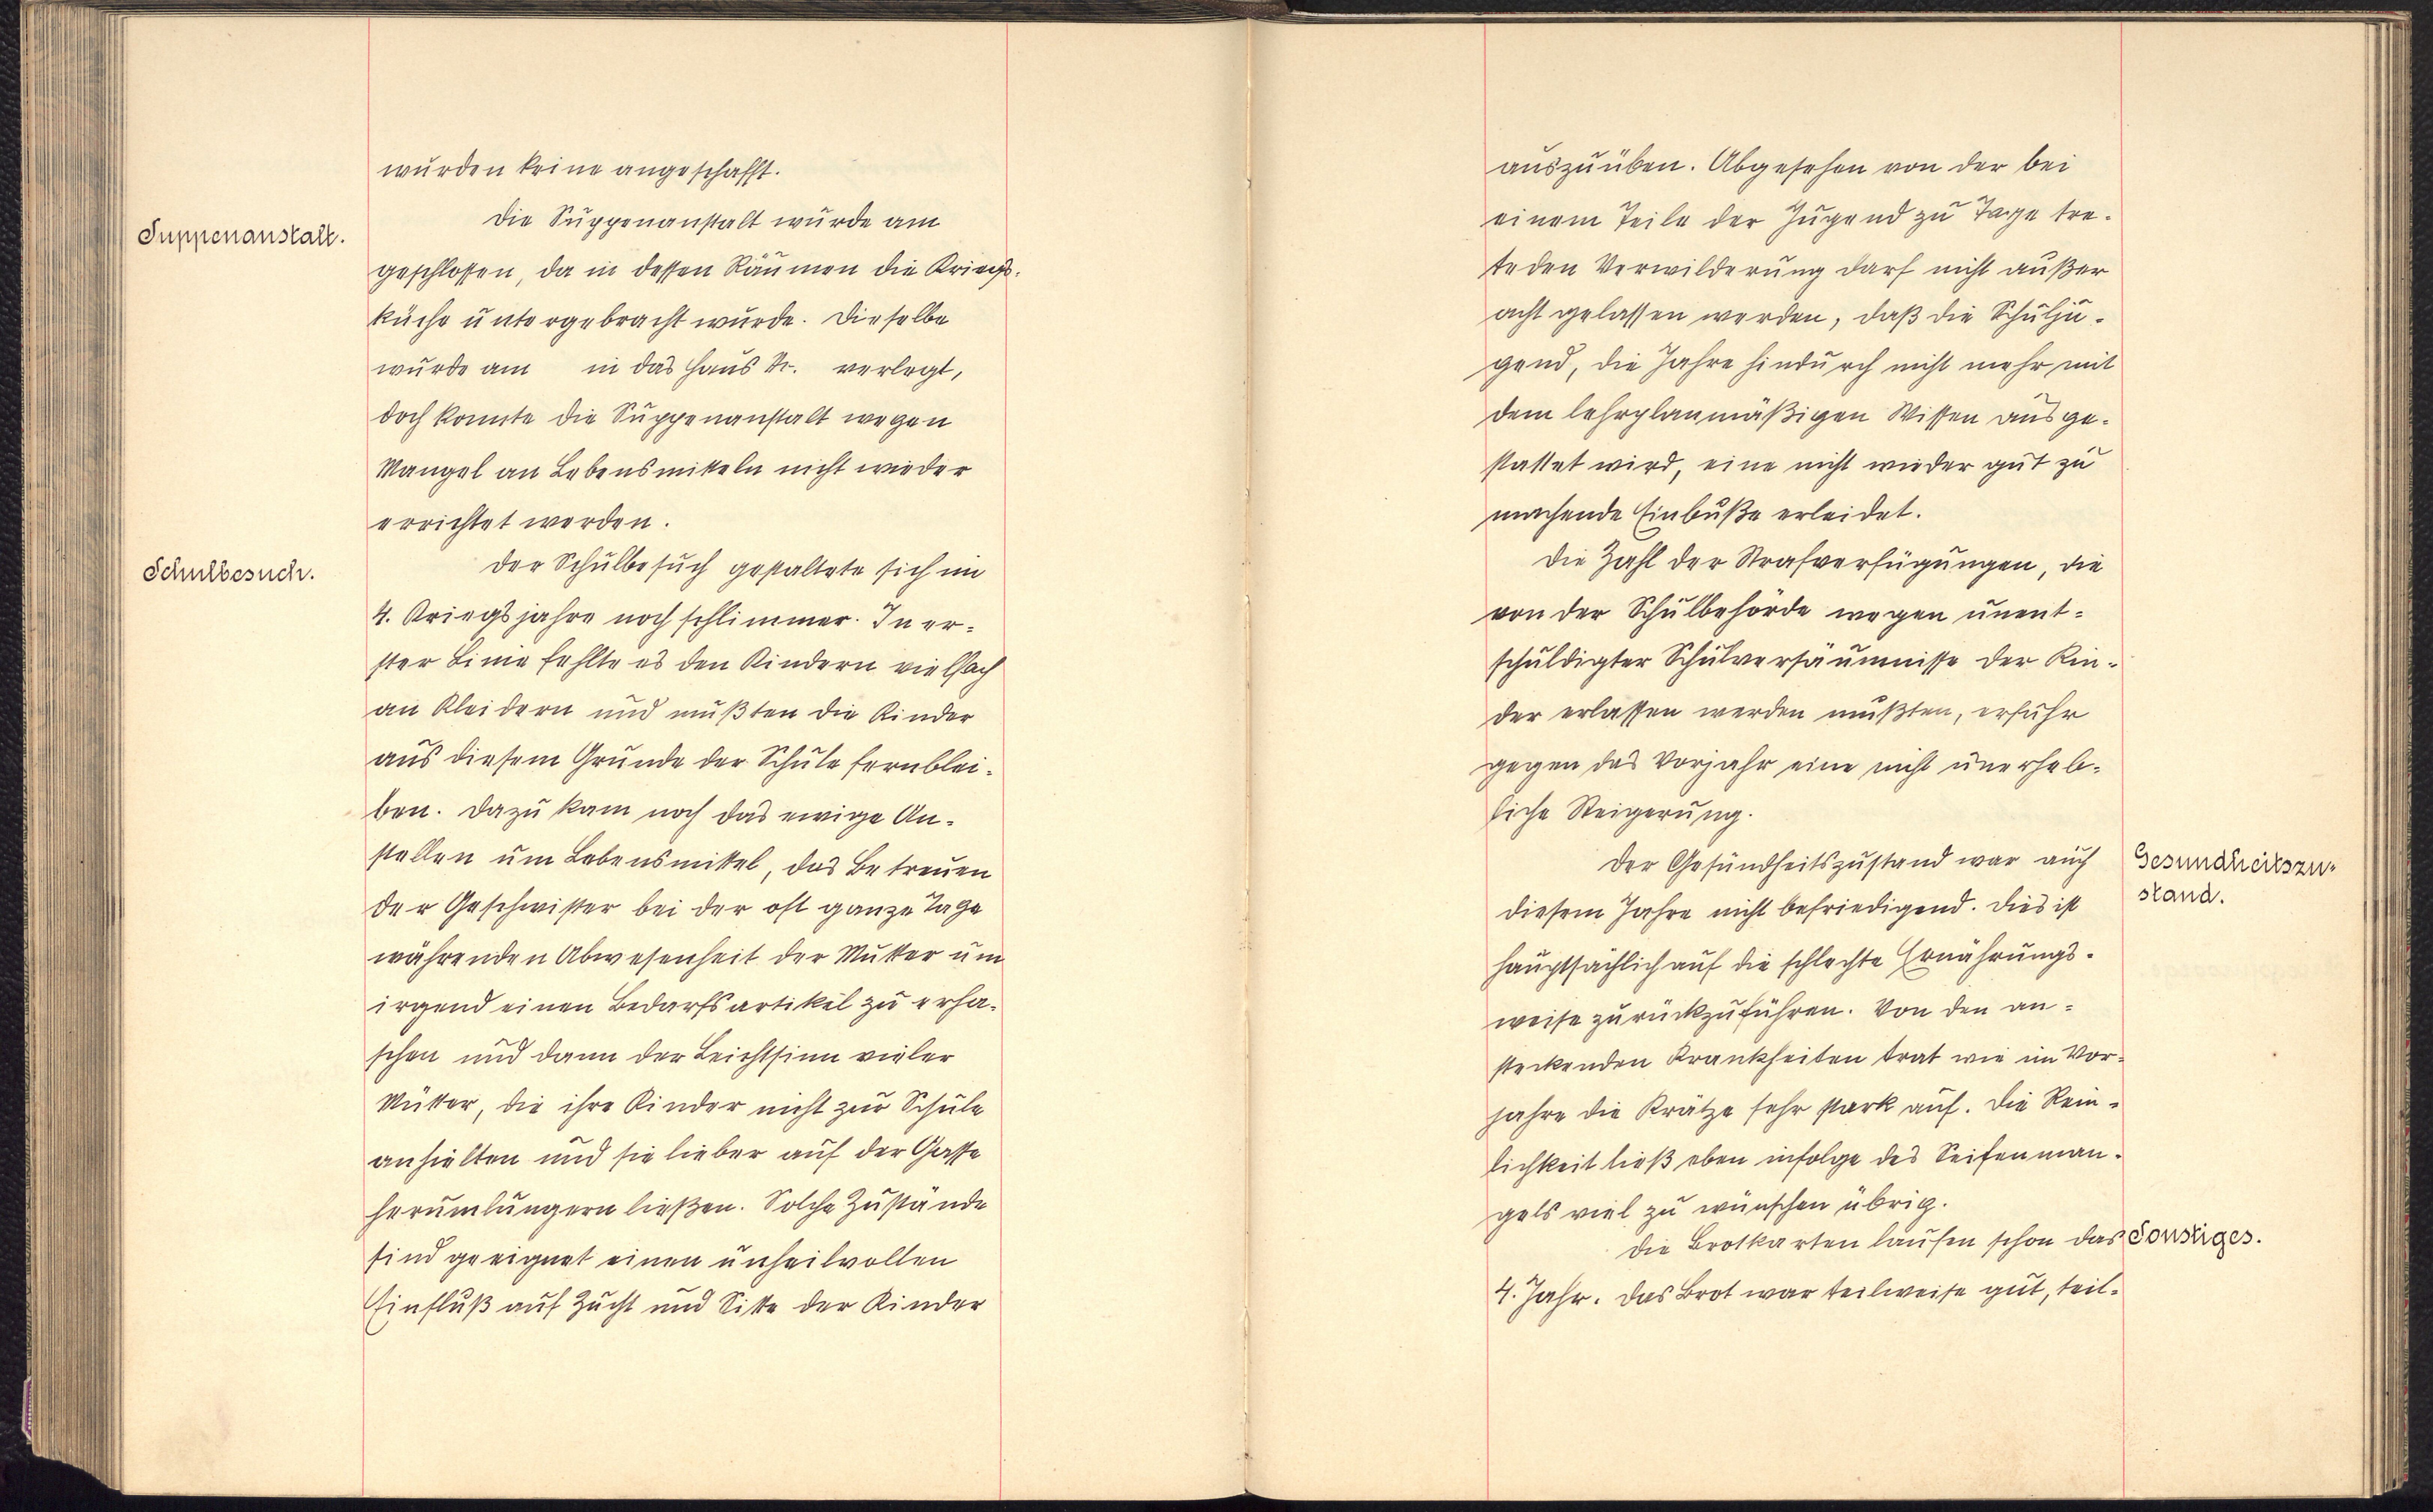 wurden keine angeschafft.
Suppenanstalt.
Die Suppenanstalt wurde am
geschlossen, da in dessen Räumen die Kriegs-
küche untergebracht wurde. Dieselbe
wurde am in das Haus Nr. verlegt,
doch konnte die Suppenanstalt wegen
Mangel an Lebensmitteln nicht wieder
errichtet werden.
Schulbesuch.
Der Schulbesuch gestaltete sich im
4. Kriegsjahre noch schlimmer. In er-
ster Linie fehlte es den Kindern vielfach
an Kleidern und mußten die Kinder
aus diesem Grunde der Schule fernblei-
ben. Dazu kam noch das ewige An-
stellen um Lebensmittel, das Betreuen
der Geschwister bei der oft ganze Tage
währenden Abwesenheit der Mutter um
irgend einen Bedarfsartikel zu erha-
schen und dann der Leichtsinn vieler
Mütter, die ihre Kinder nicht zur Schule
anhielten und sie lieber auf der Gasse
herumlungern ließen. Solche Zustände
sind geeignet einen unheilvollen
Einfluß auf Zucht und Sitte der Kinder
auszuüben. Abgesehen von der bei
einem Teile der Jugend zu Tage tre-
teden Verwilderung darf nicht außer
acht gelassen werden, daß die Schulju-
gend, die Jahre hindurch nicht mehr mit
dem lehrplanmäßigen Wissen ausge-
stattet wird, eine nicht wieder gut zu
machende Einbuße erleidet.
Die Zahl der Strafverfügungen, die
von der Schulbehörde wegen unent-
schuldigter Schulversäumnisse der Kin-
der erlassen werden mußten, erfuhr
gegen das Vorjahr eine nicht unerheb-
liche Steigerung.
Der Gesundheitszustand war auch
Gesundheitszu-
stand.
diesem Jahre nicht befriedigend. Dies ist
hauptsächlich auf die schlechte Ernährungs-
weise zurückzuführen. Von den an-
steckenden Krankheiten trat wie im Vor-
jahre die Krätze sehr stark auf. Die Rein-
lichkeit ließ eben infolge des Seifenman-
gels viel zu wünschen übrig.
Die Brotkarten laufen schon das
Sonstiges.
4. Jahr. Das Brot war teilweise gut, teil-